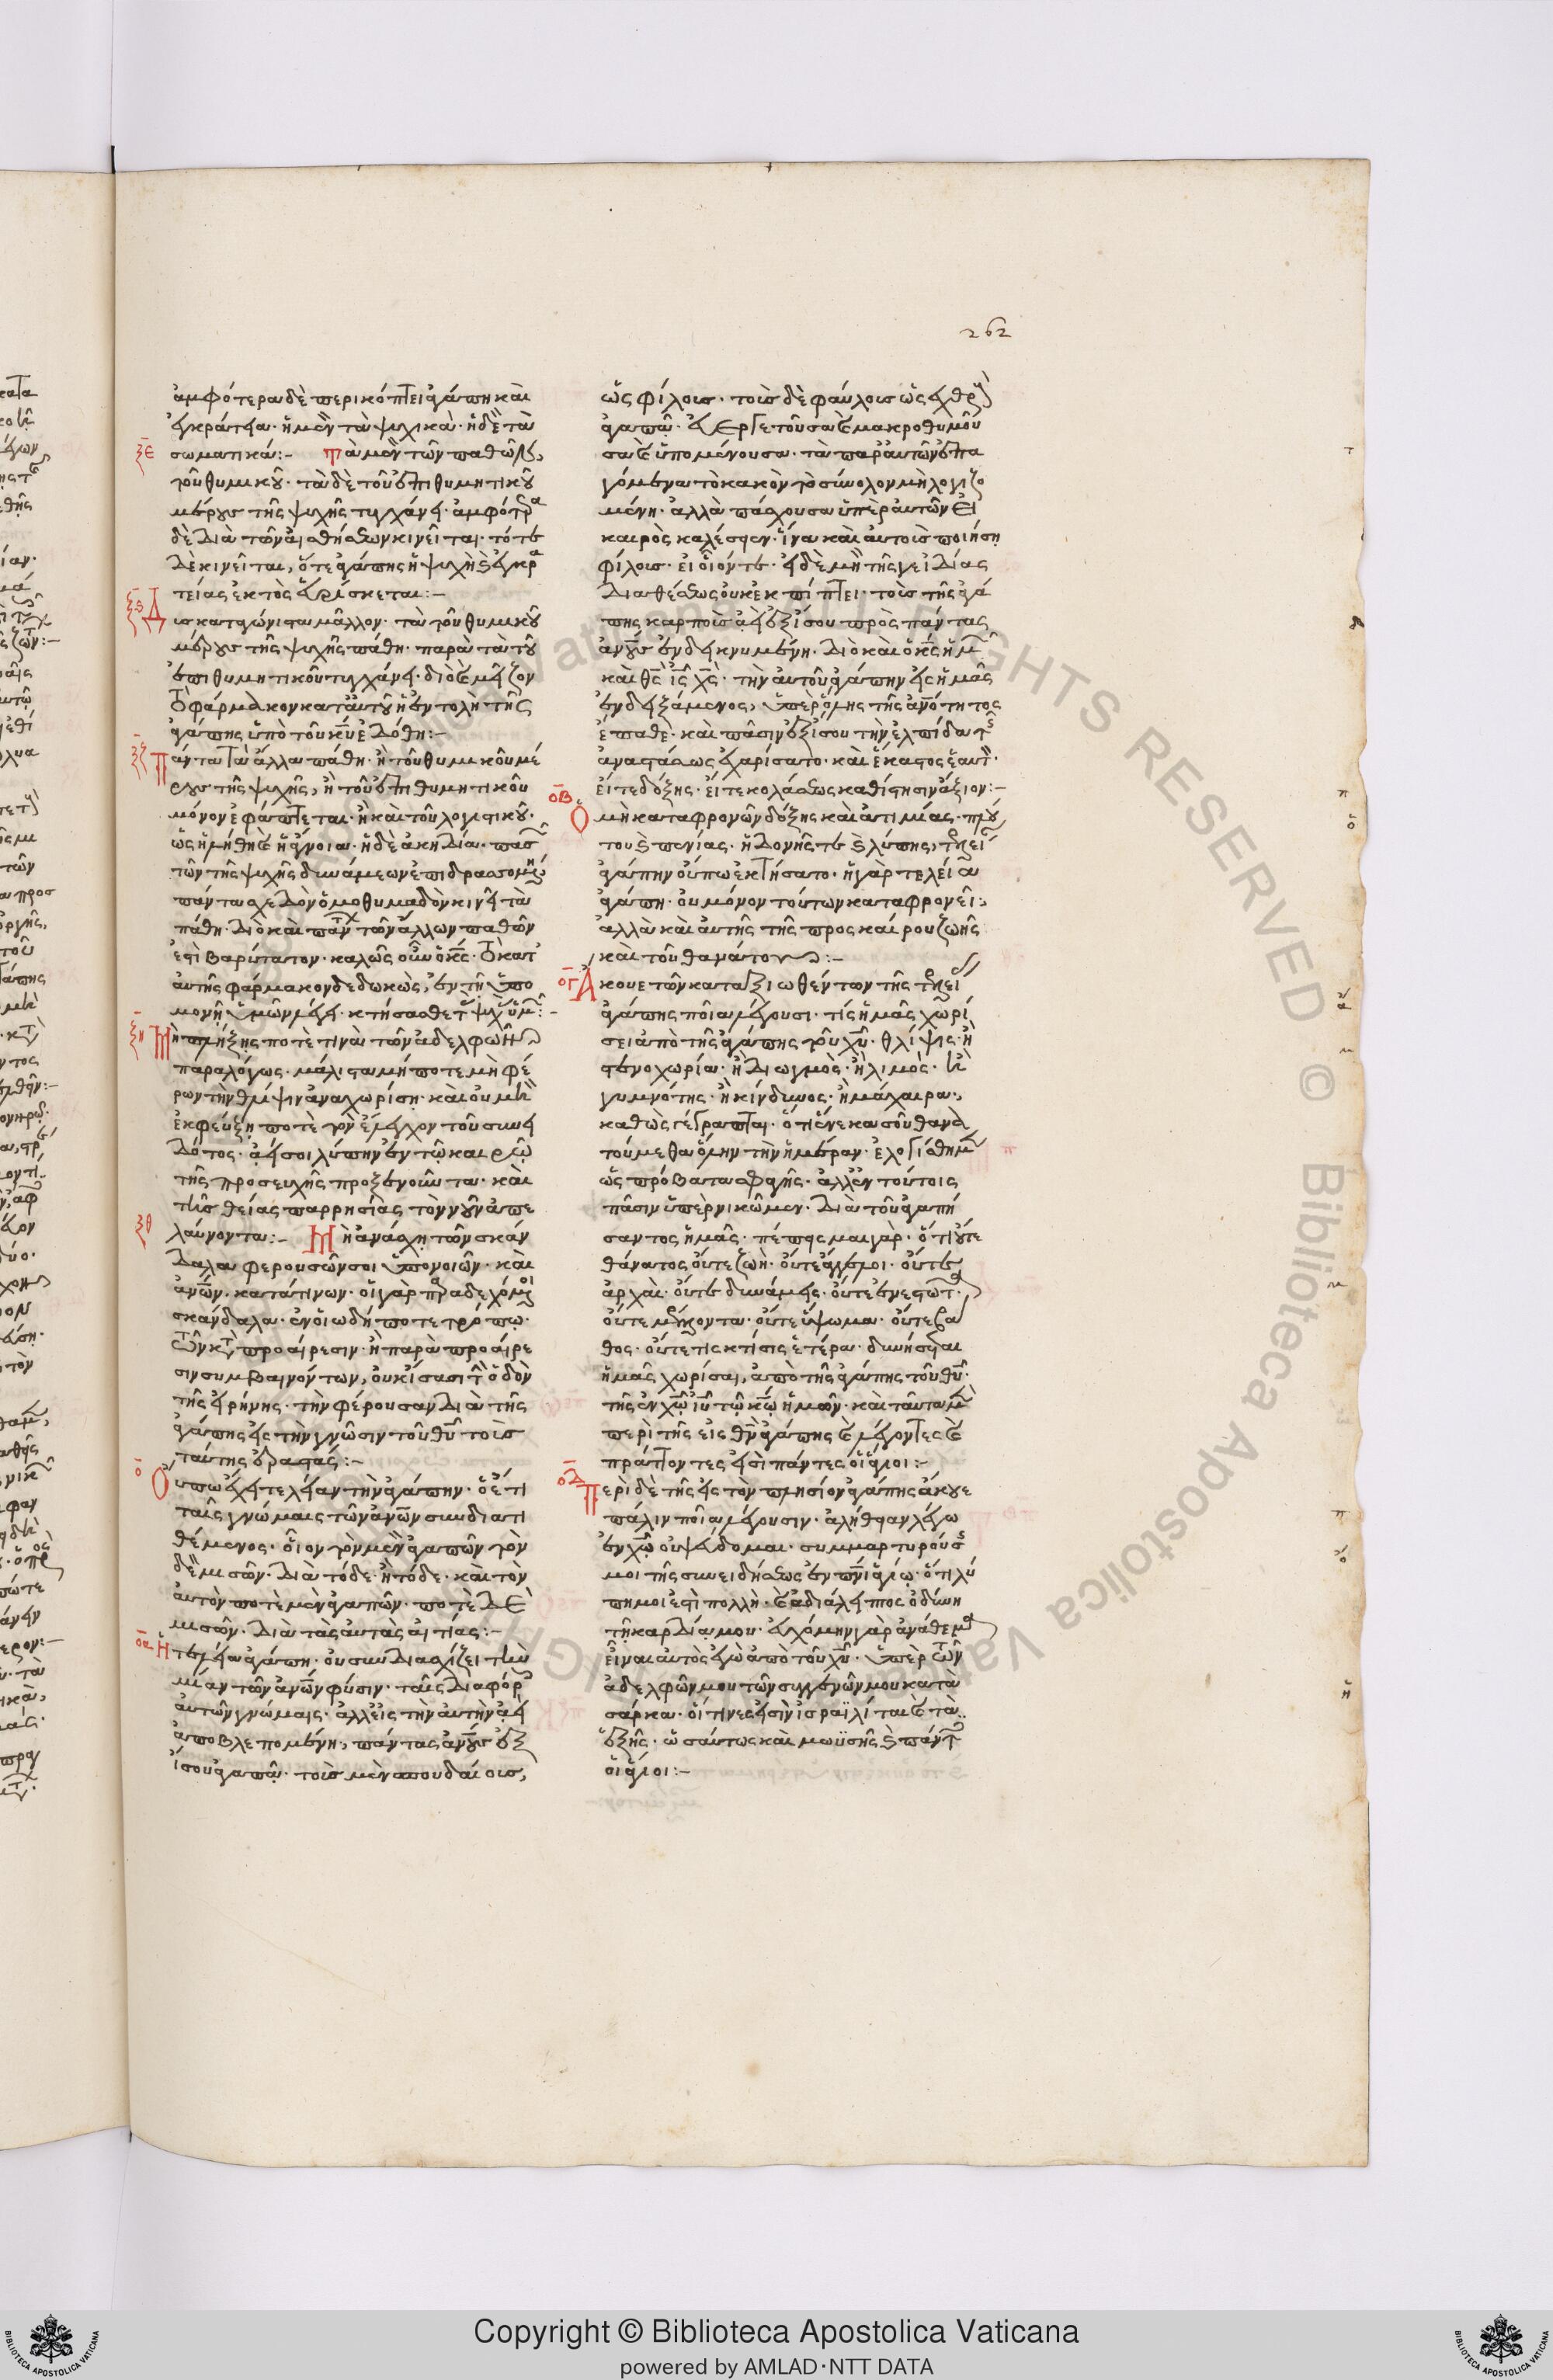 262
ἀμφότερα δὲ περικόπτει ἀγάπη καὶ
ἐγκράτεια· ἡ μὲν τὰ ψυχικὰ· ἡ δὲ τὰ
ξε σωματικά:- Τὰ μὲν τῶν παθῶν,
τοῦ θυμικοῦ· τὰ δὲ τοῦ ἐπιθυμητικοῦ
μέρους τῆς ψυχῆς τυγχάνει· ἀμφότερα
δὲ διὰ τῶν αἰσθήσεων κινεῖται· τότε
δὲ κινεῖται, ὅτε ἀγάπης ἡ ψυχὴ καὶ ἐγκρα
τείας ἐκτὸς εὑρίσκεται:-
ξς Δυσκαταγώνιστα μᾶλλον· τὰ τοῦ θυμικοῦ
μέρους τῆς ψυχῆς πάθη· παρὰ τὰ τοῦ
ἐπιθυμητικοῦ τυγχάνει· διὸ καὶ μεῖζον
τὸ φάρμακον κατ' αὐτοῦ ἡ ἐντολὴ τῆς
ἀγάπης ὑπὸ τοῦ κυ ἐδόθη:-
ξζ Πάντα τὰ ἄλλα πάθη· ἢ τοῦ θυμικοῦ μέ
ρους τῆς ψυχῆς, ἢ τοῦ ἐπιθυμητικοῦ
μόνον ἐφάπτεται· ἢ καὶ τοῦ λογιστικοῦ·
ὡς ἡ λήθη καὶ ἡ ἄγνοια· ἡ δὲ ἀκηδία· πασῶν
τῶν τῆς ψυχῆς δυνάμεων ἐπιδρασσομένη,
πάντα σχεδὸν ὁμοθυμαδὸν κινεῖ τὰ
πάθη· διὸ καὶ πάντων τῶν ἄλλων παθῶν
ἐστὶ βαρύτατον· καλῶς οὖν ὁ κς· τὸ κατ'
αὐτῆς φάρμακον δεδωκὼς, ἐν τῇ ὑπο
μονῇ ὑμῶν λέγει· κτήσασθε τὰς ψυχὰς ὑμῶν:-
ξη Μὴ πλήξῃς ποτέ τινα τῶν ἀδελφῶν
παραλόγως· μάλιστα μήποτε μὴ φέ
ρων τὴν θλῖψιν ἀναχωρίσῃ· καὶ οὐ μὴ
ἐκφεύξῃ ποτὲ τὸν ἔλεγχον τοῦ συνει
δότος· ἀεί σοι λύπην ἐν τῷ καιρῷ
τῆς προσευχῆς προξενοῦντα· καὶ
τῆς θείας παρρησίας τὸν νοῦν ἀπε
ξθ λαύνοντα:- Μὴ ἀνάσχῃ τῶν σκάν
δαλα φερουσῶν σοι ὑπονοιῶν· καὶ
ἀνων· κατά τινων· οἱ γὰρ παραδεχόμενοι
σκάνδαλα· ἐν οἱωδήποτε τρόπῳ·
τῶν κατὰ προαίρεσιν· ἢ παρὰ προαίρε
σιν συμβαινόντων, οὐκ ἴσασι τὴν ὁδὸν
τῆς εἰρήνης· τὴν φέρουσαν διὰ τῆς
ἀγάπης εἰς τὴν γνῶσιν τοῦ θυ τοὺς
ταύτης ἐραστάς:-
ο Οὔπω ἔχει τελείαν τὴν ἀγάπην· ὁ ἔτι
ταῖς γνώμαις τῶν ἀνων συνδιατι
θέμενος· οἷον τὸν μὲν ἀγαπῶν τὸν
δὲ μισῶν· διὰ τόδε· ἢ τόδε· καὶ τὸν
αὐτὸν ποτὲ μὲν ἀγαπῶν· ποτὲ δὲ
μισῶν· διὰ τὰς αὐτὰς αἰτίας:-
οα Ἡ τελεία ἀγάπη· οὐ συνδιασχίζει τὴν
μίαν τῶν ἀνων φύσιν· ταῖς διαφόροις
αὐτῶν γνώμαις· ἀλλ' εἰς τὴν αὐτὴν ἀεὶ
ἀποβλεπομένη, πάντας ἀνους ἐξ
ἴσου ἀγαπᾷ· τοὺς μὲν σπουδαίους,
ὡς φίλους· τοὺς δὲ φαύλους ὡς ἐχθροὺς
ἀγαπᾷ· εὐεργετοῦσα καὶ μακροθυμοῦ
σα καὶ ὑπομένουσα· τὰ παρ' αὐτῶν ἐπα
γόμενα τὸ κακὸν τὸ σύνολον μὴ λογιζο
μένη· ἀλλὰ πάσχουσα ὑπὲρ αὐτῶν εἰ
καιρὸς καλέσειεν· ἵνα καὶ αὐτοὺς ποιήσῃ
φίλους· εἰ οἷόν τε· εἰ δὲ μὴ τῆς γε ἰδίας
διαθέσεως οὐκ ἐκπίπτει· τοὺς τῆς ἀγά
πης καρποὺς ἀεὶ ἐξίσου πρὸς πάντας
ἀνους ἐνδεικνυμένη· διὸ καὶ ὁ κς ἡμῶν
καὶ θς ις χς· τὴν αὐτοῦ ἀγάπην εἰς ἡμᾶς
ἐνδειξάμενος, ὑπὲρ ὅλης τῆς ἀνοτητος
ἔπαθε· καὶ πᾶσιν ἐξίσου τὴν ἐλπίδα τῆς
ἀναστάσεως ἐχαρίσατο· καὶ ἕκαστος ἑαυτὸν·
εἴτε δόξης· εἴτε κολάσεως καθίστησιν ἄξιον:-
οβ Ὁ μὴ καταφρονῶν δόξης καὶ ἀτιμίας· πλού
του καὶ πενίας· ἡδονῆς τε καὶ λύπης, τελείαν
ἀγάπην οὔπω ἐκτήσατο· ἡ γὰρ τελεία
ἀγάπη· οὐ μόνον τούτων καταφρονεῖ,
ἀλλὰ καὶ αὐτῆς τῆς προσκαίρου ζωῆς
καὶ τοῦ θανάτου:-
ογ Ἄκουε τῶν καταξιωθέντων τῆς τελείας
ἀγάπης ποῖα λέγουσι· τίς ἡμᾶς χωρί
σει ἀπὸ τῆς ἀγάπης τοῦ χυ· θλίψις· ἢ
στενοχωρία· ἢ διωγμὸς· ἢ λιμὸς· ἢ
γυμνότης· ἢ κίνδυνος· ἢ μάχαιρα,
καθὼς γέγραπται· ὅτι ἕνεκα σοῦ θανα
τούμεθα ὅλην τὴν ἡμέραν· ἐλογίσθημεν
ὡς πρόβατα σφαγῆς· ἀλλ' ἐν τούτοις
πᾶσιν ὑπερνικῶμεν· διὰ τοῦ ἀγαπή
σαντος ἡμᾶς· πέπεισμαι γὰρ· ὅτι οὔτε
θάνατος οὔτε ζωὴ· οὔτε ἄγγελοι· οὔτε
ἀρχαὶ· οὔτε δυνάμεις· οὔτε ἐνεστῶτα·
οὔτε μέλλοντα· οὔτε ὕψωμα· οὔτε βά
θος· οὔτε τις κτίσις ἑτέρα· δυνήσεται
ἡμᾶς χωρίσαι, ἀπὸ τῆς ἀγάπης τοῦ θυ·
τῆς ἐν χω ιυ τῷ κω ἡμῶν· καὶ ταῦτα μὲν
περὶ τῆς εἰς θν ἀγάπης καὶ λέγοντες καὶ
πράττοντες εἰσὶ πάντες οἱ ἅγιοι:-
οδ Περὶ δὲ τῆς εἰς τὸν πλησίον ἀγάπης ἄκουε
πάλιν ποῖα λέγουσιν· ἀλήθειαν λέγω
ἐν χω οὐ ψεύδομαι· συμμαρτυρούσης
μοι τῆς συνειδήσεως ἐν πνι ἁγίῳ· ὅτι λύ
πη μοι ἐστὶ πολλὴ· καὶ ἀδιάλειπτος ὀδύνη
τῇ καρδίᾳ μου· εὐχόμην γὰρ ἀνάθεμα
εἶναι αὐτὸς ἐγὼ ἀπὸ τοῦ χυ· ὑπὲρ τῶν
ἀδελφῶν μου τῶν συγγενῶν μου κατὰ
σάρκα· οἵτινές εἰσιν ἰσραϊλίται καὶ τὰ
ἑξῆς· ὡσαύτως καὶ μωϋσῆς καὶ πάντες
οἱ ἅγιοι:-
Copyright © Biblioteca Apostolica Vaticana
powered by AMLAD·NTT DATA